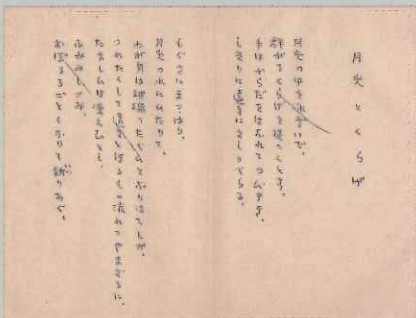 月光とくらげ
月光の中を泳ぎいで、
群がるくらげを捉へんとす、
手はからだをはなれてのびゆき、
しきりに遠きにさしのべらる、
もぐさにまつはり、
月光の水にひたりて、
わが身は玻璃のたぐひとなりはてしか、
つめたくして透きとほるもの流れてやまざるに、
たましひは凍えむとし、
ふかみにしづみ、
るるごとくなりて祈りあぐ。